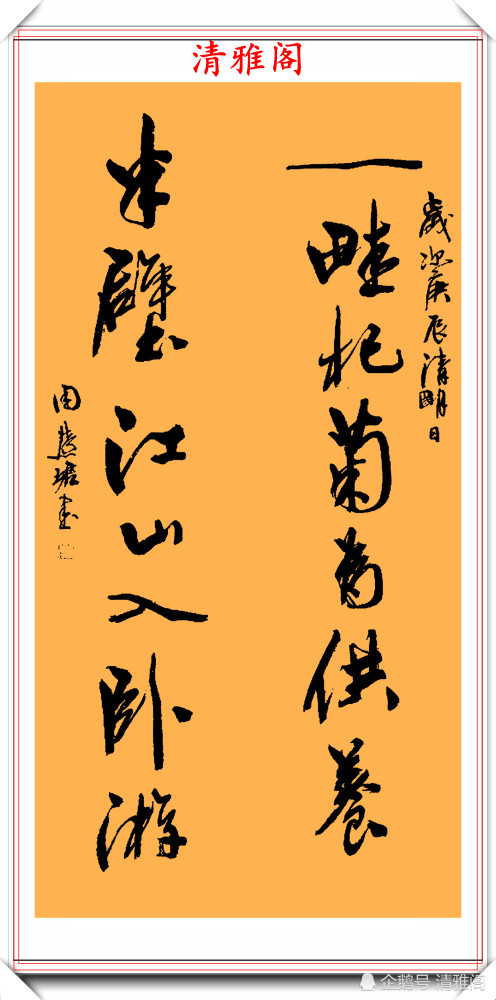 清雅阁
歲次庚辰清明日
一畦杞菊为供養
半壁江山入卧游
周慧珺书
企鹅号 清雅阁